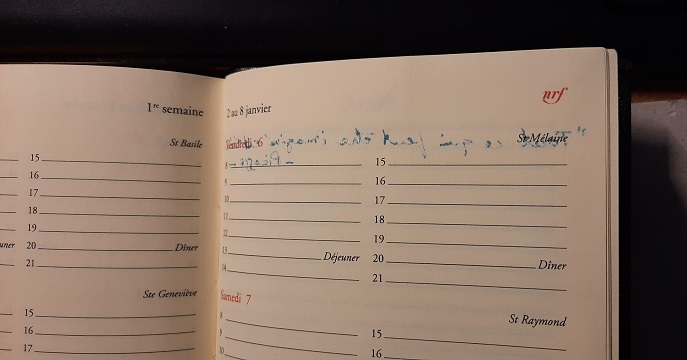 1re semaine
St Basile
15
16
17
18
19
uner 20 Dîner
21
Ste Geneviève
15
16
17
2 au 8 janvier
nrf
Vendredi 6 St Mélaine
"Tout ce qui peut être imaginé
- Picasso -
8 15
9 16
10 17
11 18
12 19
13 Déjeuner 20 Dîner
14 21
Samedi 7 St Raymond
8 15
9 16
10